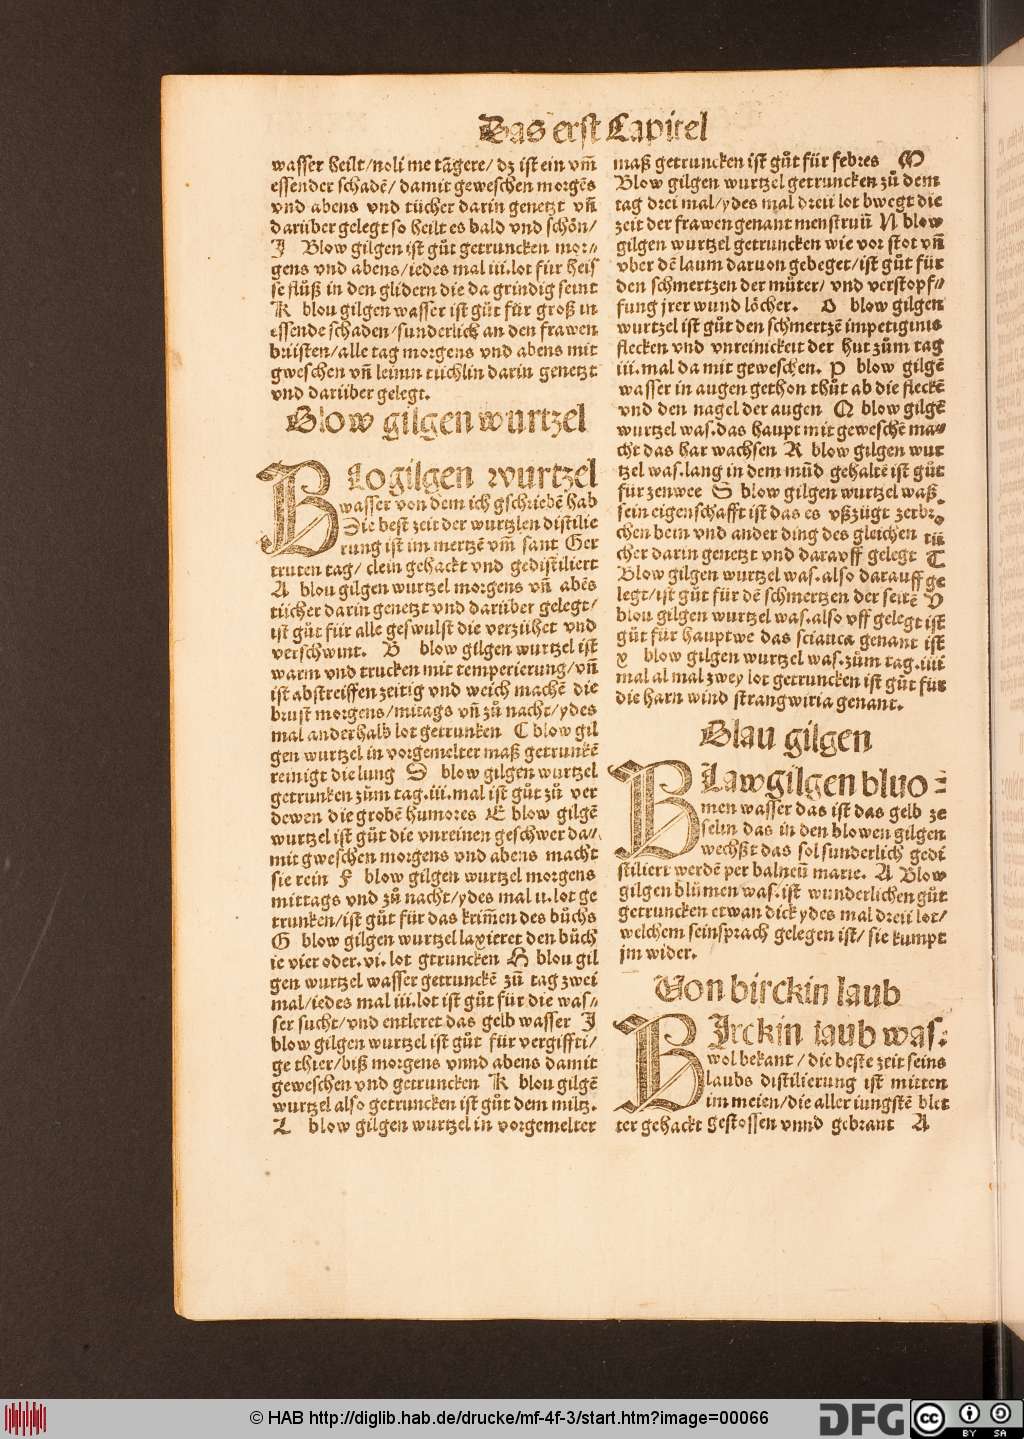 Das erst Capitel
wasser heilt/noli me tāgere/ dz ist ein vm̄
essender schadē/ damit geweschen morgēs
vnd abens vnd tücher darin genetzt vn̄
darüber gelegt so heilt es bald vnd schön/
J Blow gilgen ist gůt getruncken mor⸗
gens vnd abens/iedes mal iii.lot für heis
se flüß in den glidern die da grindig seint
K blou gilgen wasser ist gůt für groß in
essende schaden/sunderlich an den frawen
brüsten/alle tag morgens vnd abens mit
gweschen vn̄ leinin tüchlin darin genetzt
vnd darüber gelegt.
Blow gilgen wurtzel
BLogilgen wurtzel
wasser von dem ich gschriebē hab
Die best zeit der wurtzlen distilie
rung ist im mertzē vm̄ sant Ger
truten tag/ clein gehackt vnd gedistiliert
A blou gilgen wurtzel morgens vn̄ abēs
tücher darin genetzt vnd darüber gelegt/
ist gůt für alle geswulst die verzühet vnd
verschwint. B blow gilgen wurtzel ist
warm vnd trucken mit temperierung/vn̄
ist abstreiffen zeitig vnd weich machē die
brust morgens/mitags vn̄ zů nacht/ydes
mal anderhalb lot getrunken C blow gil
gen wurtzel in vorgemelter maß getrunkē
reinigt die lung D blow gilgen wurtzel
getrunken zům tag.iii.mal ist gůt zů ver
dewen die grobē humores E blow gilgē
wurtzel ist gůt die vnreinen geschwer da⸗
mit gweschen morgens vnd abens macht
sie rein F blow gilgen wurtzel morgens
mittags vnd zů nacht/ydes mal ii.lot ge
trunken/ist gůt für das krim̄en des bůchs
G blow gilgen wurtzel laxieret den bůch
ie vier oder.vi.lot gtruncken H blou gil
gen wurtzel wasser getrunckē zū tag zwei
mal/iedes mal iii.lot ist gůt für die was⸗
ser sucht/vnd entleret das gelb wasser J
blow gilgen wurtzel ist gůt für vergiffti/
ge thier/biß morgens vnnd abens damit
geweschen vnd getruncken K blou gilgē
wurtzel also getruncken ist gůt dem miltz.
L blow gilgen wurtzel in vorgemelter
maß getruncken ist gůt für febres M
Blow gilgen wurtzel getruncken zů dem
tag drei mal/ydes mal dreii lot bwegt die
zeit der frawen genant menstruū N blow
gilgen wurtzel getruncken wie vor stot vn̄
vber dē laum daruon gebeget/ist gůt für
den schmertzen der můter/ vnd verstopf⸗
fung jrer wund löcher. O blow gilgen
wurtzel ist gůt den schmertzē impetiginis
flecken vnd vnreinickeit der hut zům tag
iii.mal da mit geweschen. P blow gilgē
wasser in augen gethon thůt ab die fleckē
vnd den nagel der augen Q blow gilgē
wurtzel was.das haupt mit geweschē ma⸗
cht das har wachsen R blow gilgen wur
tzel was.lang in dem mūd gehaltē ist gůt
für zenwee S blow gilgen wurtzel waß
sein eigenschafft ist das es vßzügt zerbr.
chen bein vnd ander ding des gleichen tü
cher darin genetzt vnd darauff gelegt T
Blow gilgen wurtzel was.also darauff ge
legt/ist gůt für dē schmertzen der seitē V
blou gilgen wurtzel was.also vff gelegt ist
gůt für hauptwe das sciatica genant ist
x blow gilgen wurtzel was.zům tag.iiii
mal al mal zwey lot getruncken ist gůt für
die harn wind strangwiria genant.
Blau gilgen
BLawgilgen bluo⸗
men wasser das ist das gelb ze
selin das in den blowen gilgen
wechßt das sol sunderlich gedi
stiliert werdē per balneū marie. A Blow
gilgen blůmen was.ist wunderlichen gůt
getruncken etwan dick ydes mal dreii lot/
welchem sein sprach gelegen ist/ sie kumpt
jm wider.
Von birckin laub
BJrckin laub was.
wol bekant/die beste zeit seins
laubs distilierung ist mitten
im meien/die aller iungstē blet
ter gehackt gestossen vnnd gebrant A
© HAB http://diglib.hab.de/drucke/mf-4f-3/start.htm?image=00066
DFG
cc
BY SA